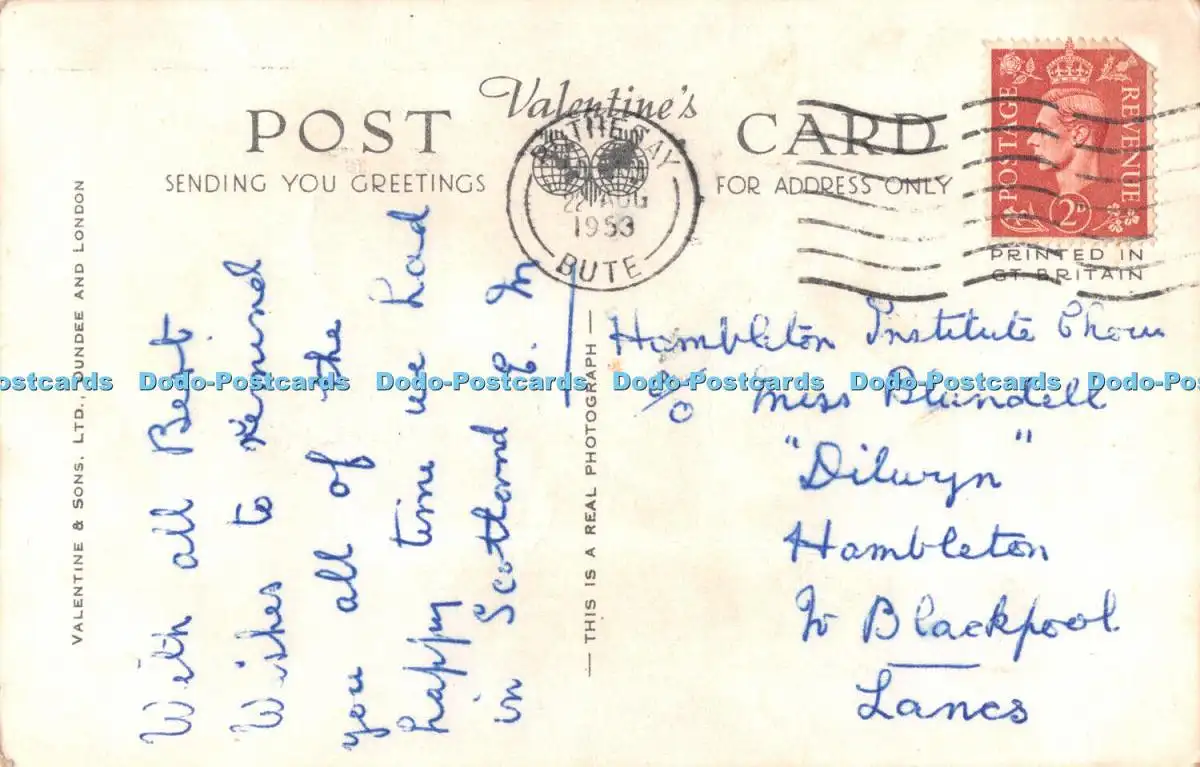 Valentine's
POST CARD
SENDING YOU GREETINGS
FOR ADDRESS ONLY
POSTAGE REVENUE
2D
PRINTED IN
GT. BRITAIN
22 AUG
1953
BUTE
VALENTINE & SONS. LTD., DUNDEE AND LONDON
With all Best
Wishes to remind
you all of the
happy time we had
in Scotland E. M
— THIS IS A REAL PHOTOGRAPH —
Hambleton Institute Choir
c/o Miss Blundell
"Dilwyn"
Hambleton
Nr Blackpool
Lancs
Dodo-Postcards Dodo-Postcards Dodo-Postcards Dodo-Postcards Dodo-Postcards Dodo-Post